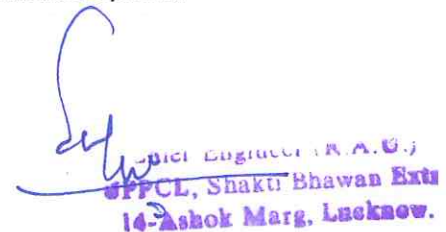 Chief Engineer (R.A.U.)
UPPCL, Shakti Bhawan Extn
14-Ashok Marg, Lucknow.